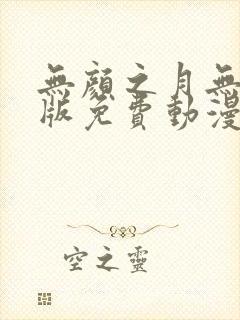 無顏之月無
版免費動漫
空之靈